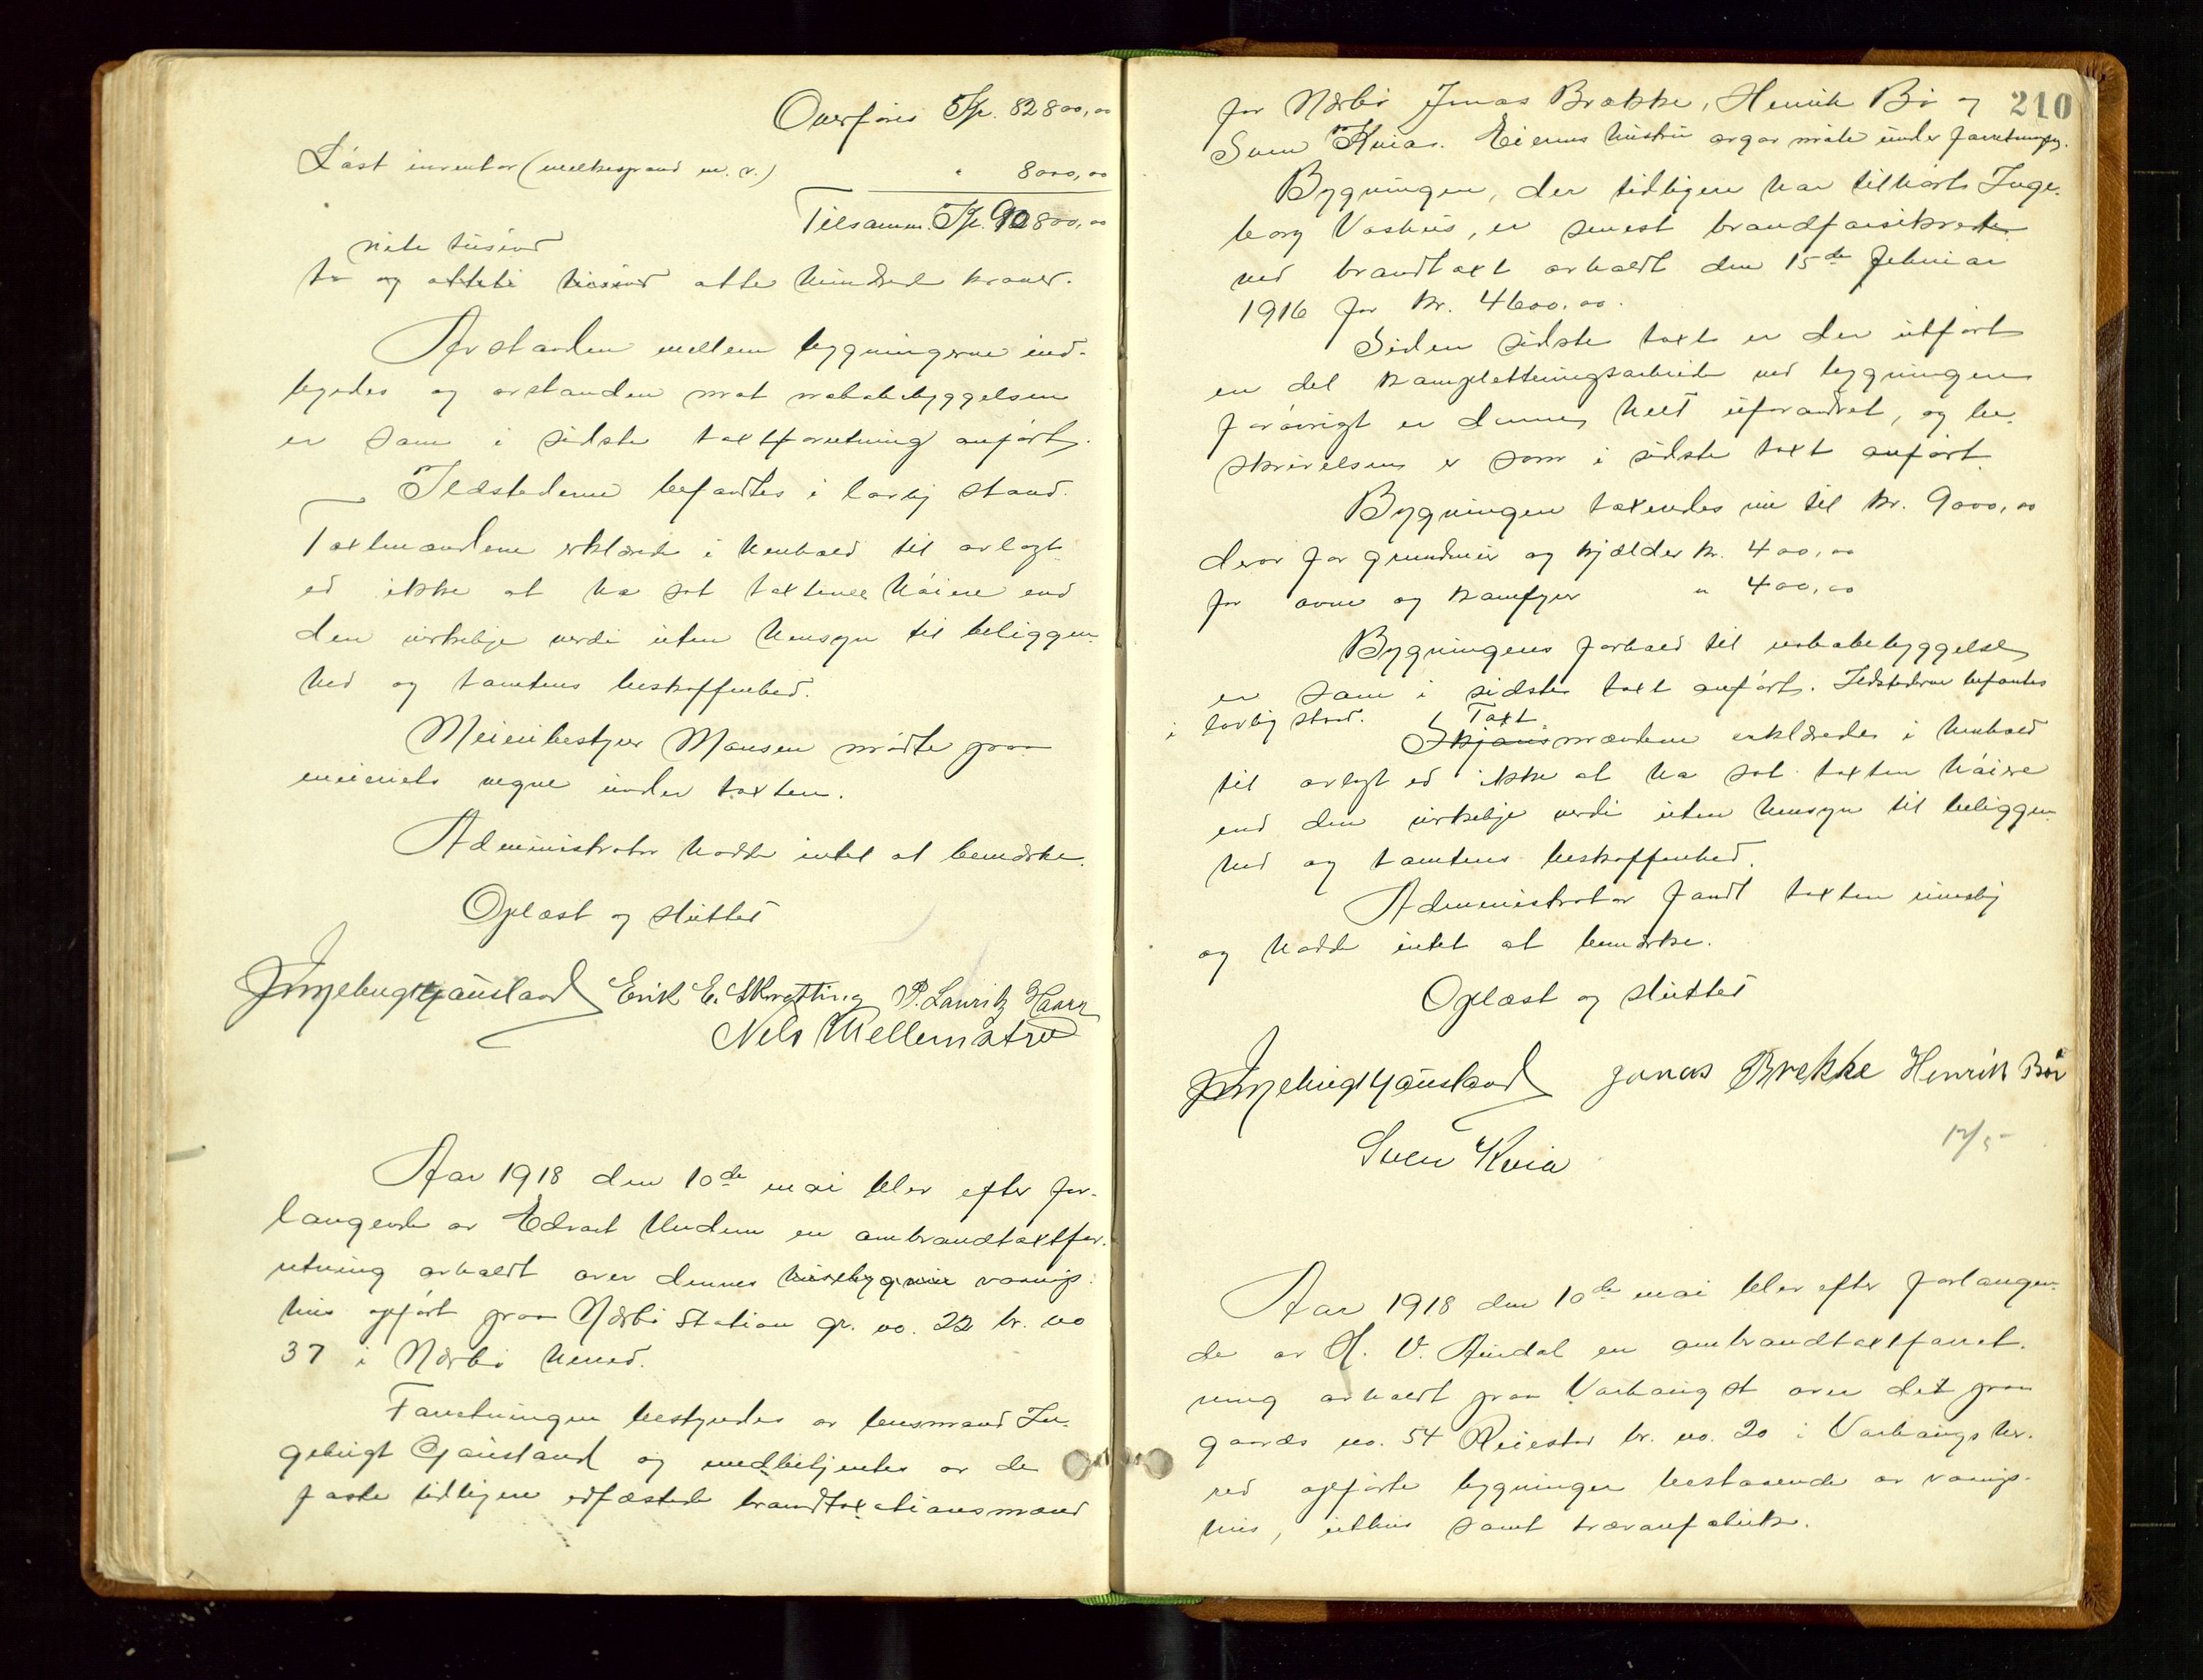 Overføres Kr. 82800,00
Løst inventar (melkespand m. v.) " 8000,00
Tilsamm. Kr. 90800,00
nitti tusind
to og otteti tusind otte hundrede kroner.
Avstanden mellem bygningerne ind-
byrdes og avstanden mot nabobebyggelsen
er som i sidste taxtforretning anført.
Ildstederne befandtes i lovlig stand.
Taxtmændene erklærede i henhold til avlagt
ed ikke at ha sat taxterne høiere end
den virkelige verdi uten hensyn til beliggen-
hed og tomtens beskaffenhed.
Meieribestyrer Monsen møtte paa
meieriets vegne under taxten.
Administrator hadde intet at bemerke.
Oplæst og sluttet
Ingebrigt Gausland Erik E. Skretting P. Lauritz Haarr
Nels Mellemstrø
Aar 1918 den 10de mai blev efter for-
langende av Edvart Undem en ombrandtaxtfor-
retning avholdt over dennes husebygnin vaanings-
hus opført paa Nærbø Station gr. no. 22 br. no
37 i Nærbø herred.
Forretningen bestyredes av lensmand In-
gebrigt Gausland og medbetjentes av de
faste tidligere edfæstede brandtaxationsmænd
210
for Nærbø Jonas Brekke, Henrik Bø og
Sven Kvia. Eierens hustru møtte under forretningen.
Bygningen, der tidligere har tilhørt Inge-
borg Vashus, er senest brandforsikret
ved brandtaxt avholdt den 15de februar
1916 for kr. 4600,00.
Siden sidste taxt er der utført
en del kompletteringsarbeide ved bygningen
forøvrigt er denne helt uforandret, og be-
skrivelsen er som i sidste taxt anført.
Bygningen taxeredes nu til kr. 9000,00
derav for grundmur og kjælder kr. 400,00
for ovne og komfyr " 400,00
Bygningens forhold til nabobebyggelse
er som i sidste taxt anført. Ildstederne befantes
i lovlig stand. Taxt
Skjønsmændene erklærede i henhold
til avlagt ed ikke at ha sat taxten høiere
end den virkelige verdi uten hensyn til beliggen-
hed og tomtens beskaffenhed.
Administrator fandt taxten rimelig
og hadde intet at bemerke.
Oplæst og sluttet
Ingebrigt Gausland Jonas Brekke Henrik Bø
Sven Kvia
12/5
Aar 1918 den 10de mai blev efter forlangen-
de av H. V. Aindal en ombrandtaxtforret-
ning avholdt paa Varhaug st over det paa
gaards no. 54 Reiestad br. no. 20 i Varhaugs her-
red opførte bygninger bestaaende av vaanings-
hus, uthus samt trævarefabrik.